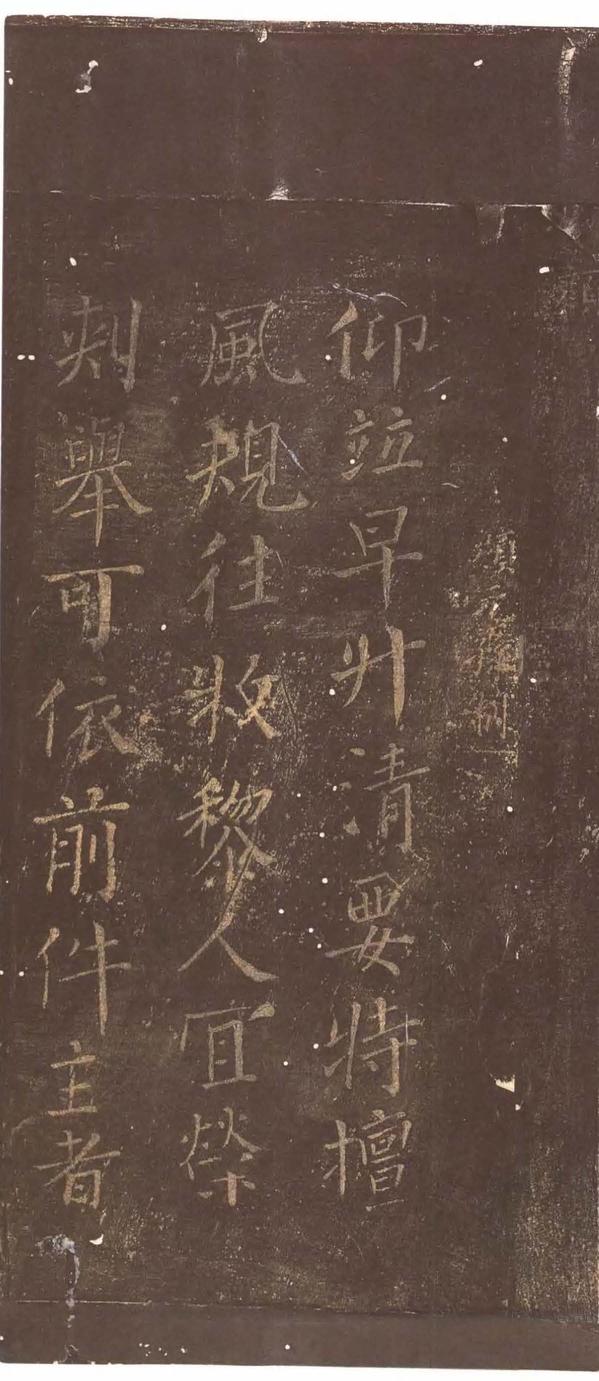 仰竝早升清要特擅
風規往牧黎人宜榮
刾舉可依前件主者